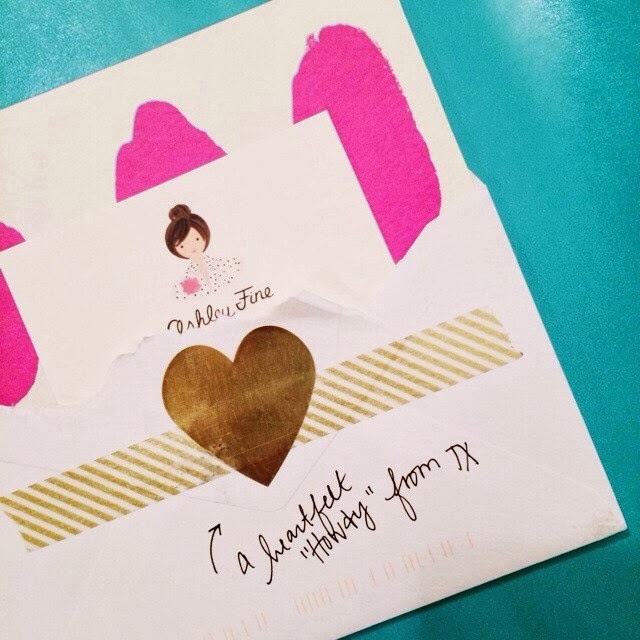 Ashley Fine
a heartfelt
"Howdy" from TX